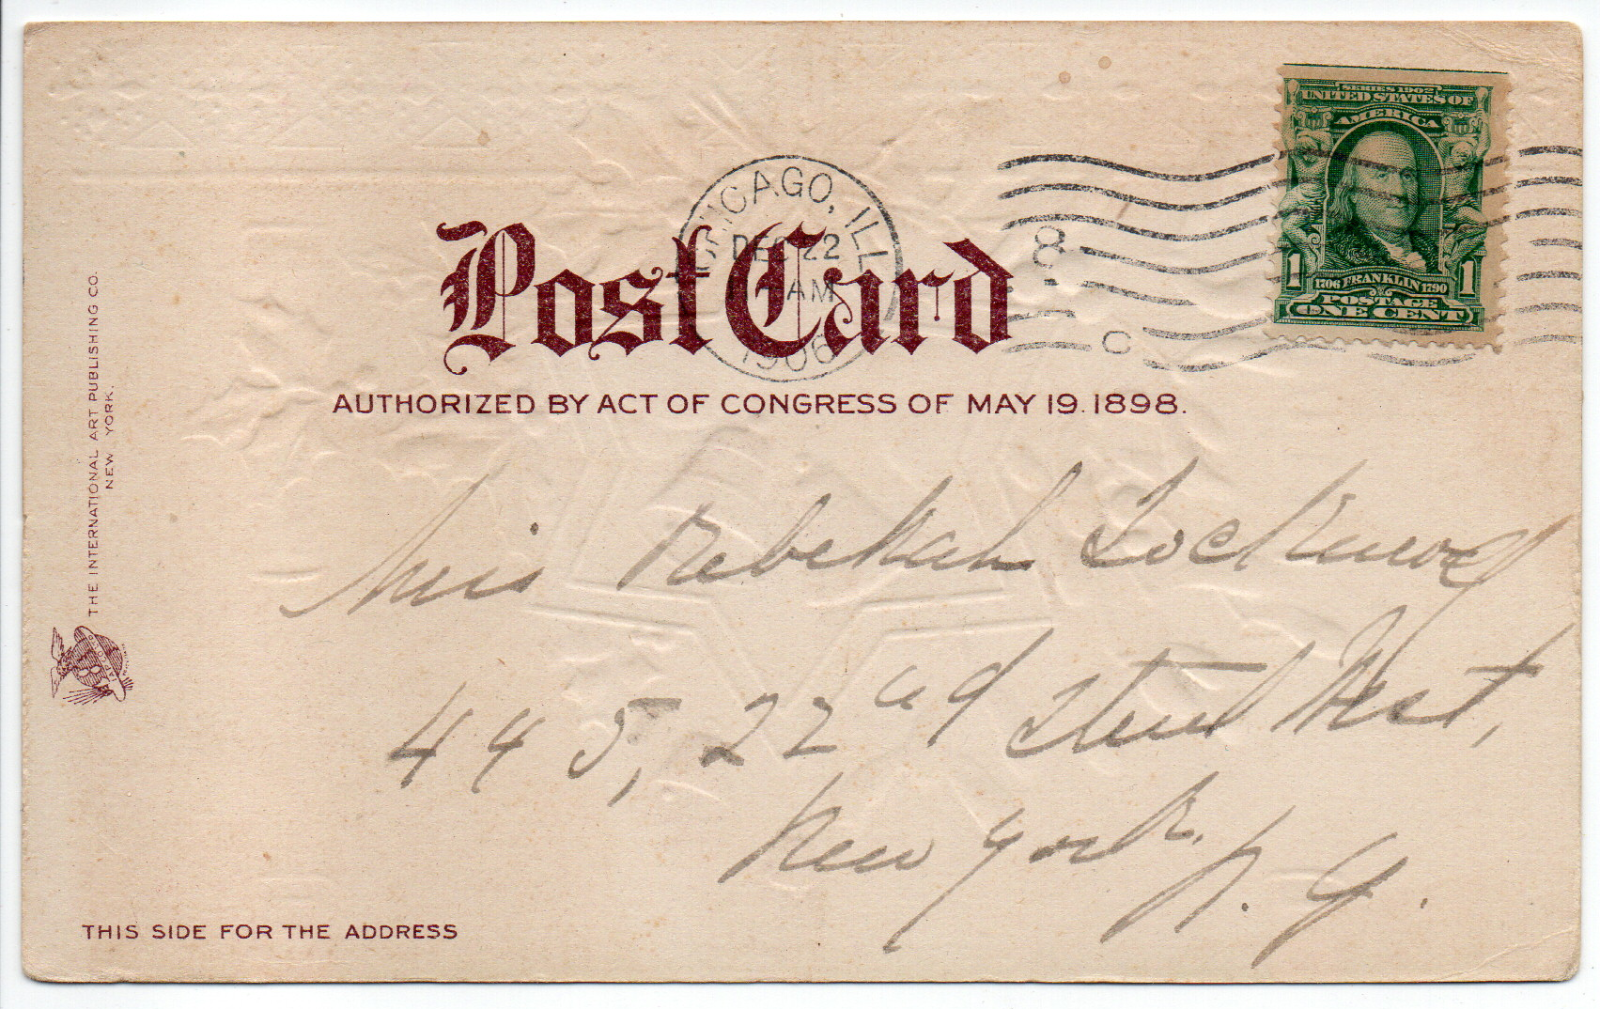 SERIES 1902
UNITED STATES OF
AMERICA
1 1706 FRANKLIN 1790 1
POSTAGE
ONE CENT
CHICAGO, ILL.
DEC 22
AM
1906
8
C
Post Card
AUTHORIZED BY ACT OF CONGRESS OF MAY 19. 1898.
THE INTERNATIONAL ART PUBLISHING CO.
NEW YORK.
Miss Rebekah Lockwood
445, 22nd Street West,
New York. N. Y.
THIS SIDE FOR THE ADDRESS